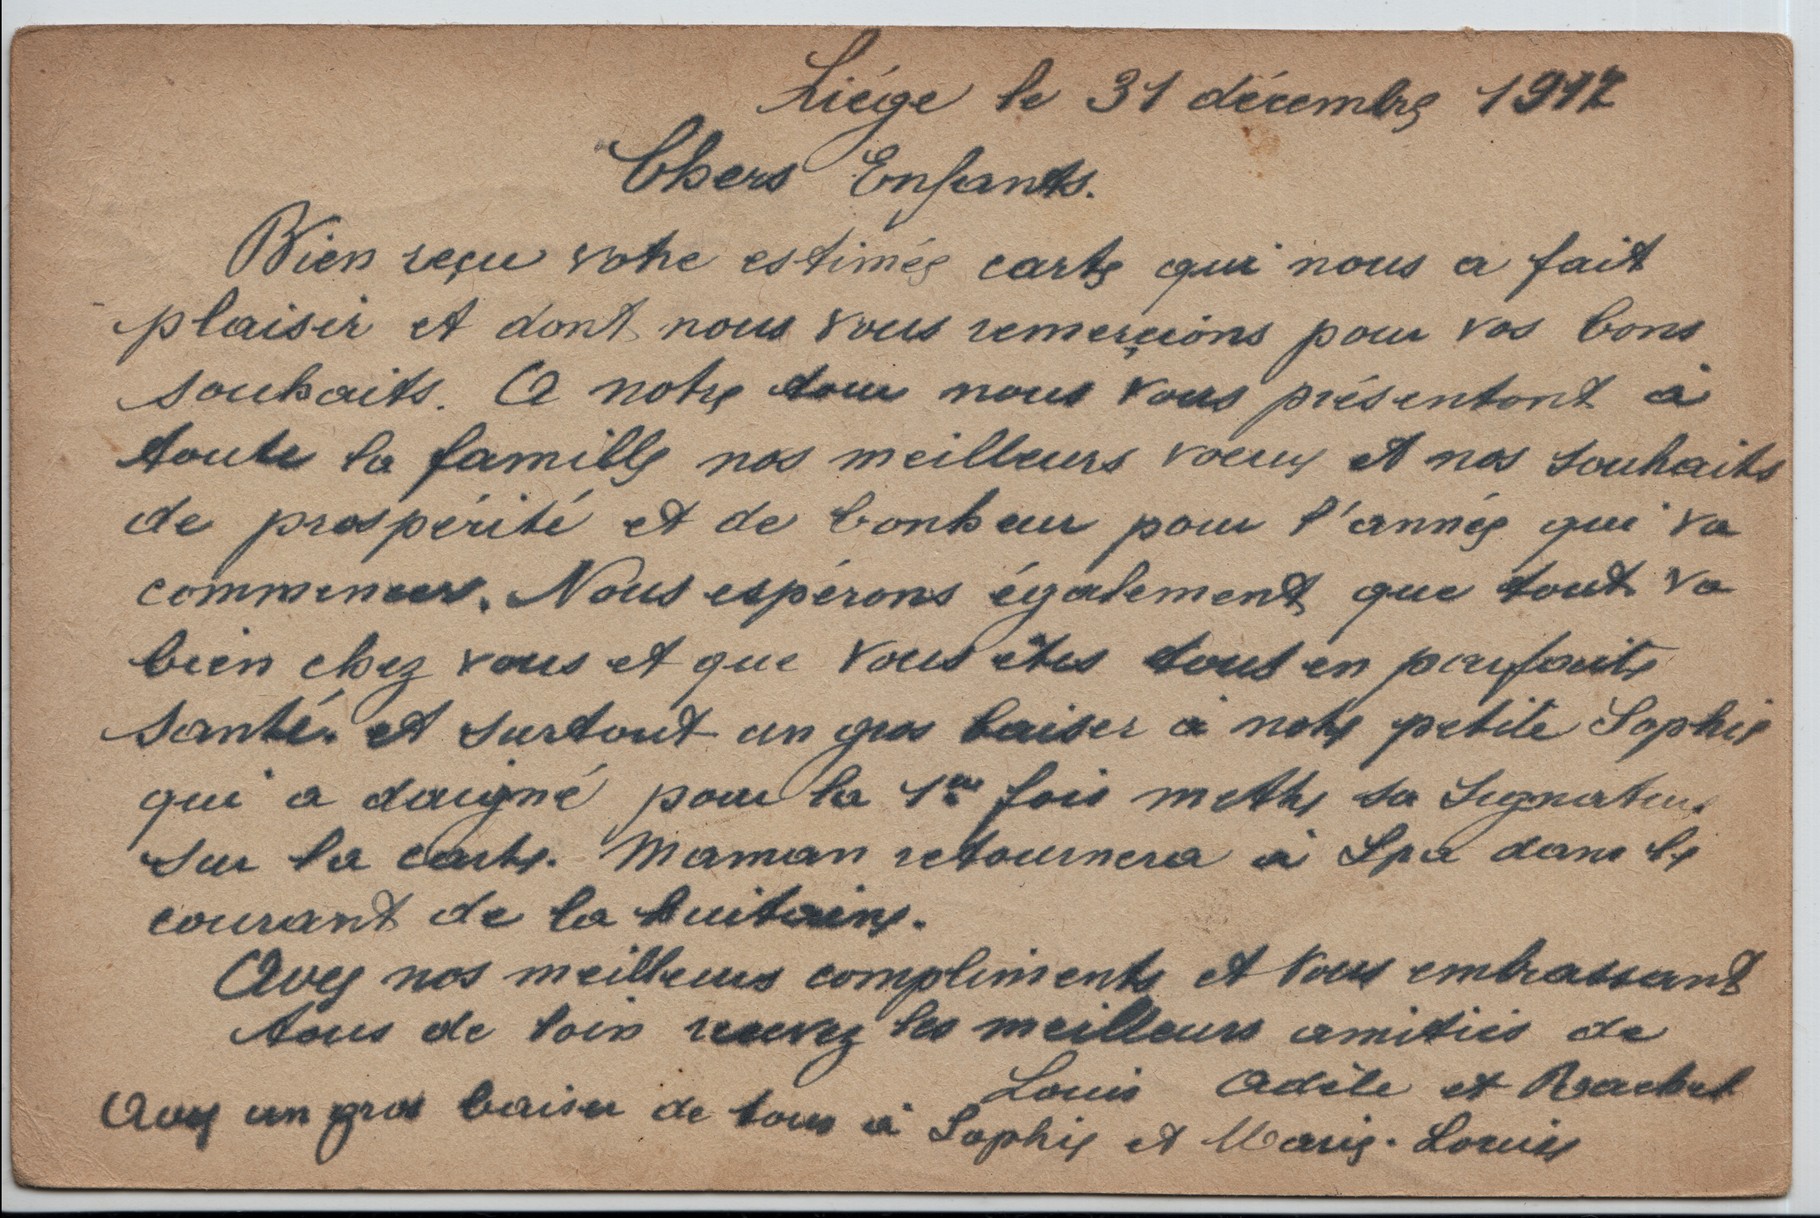 Liége le 31 décembre 1917
Chers Enfants.
Bien reçu votre estimée carte qui nous a fait
plaisir et dont nous vous remerçions pour vos bons
souhaits. A notre tour nous vous présentont à
toute la famille nos meilleurs voeux et nos souhaits
de prospérité et de bonheur pour l'année qui va
commencer. Nous espérons également que tout va
bien chez vous et que vous êtes tous en parfaite
santé. et surtout un gros baiser à notre petite Sophie
qui a daigné pour la 1ère fois mettre sa signature
sur la carte. Maman retournera à Spa dans le
courant de la huitaine.
Avec nos meilleurs compliments et vous embrassant
tous de loin recevez les meilleurs amitiés de
Louis Adèle et Rachel
Avec un gros baiser de tous à Sophie et Marie-Louise